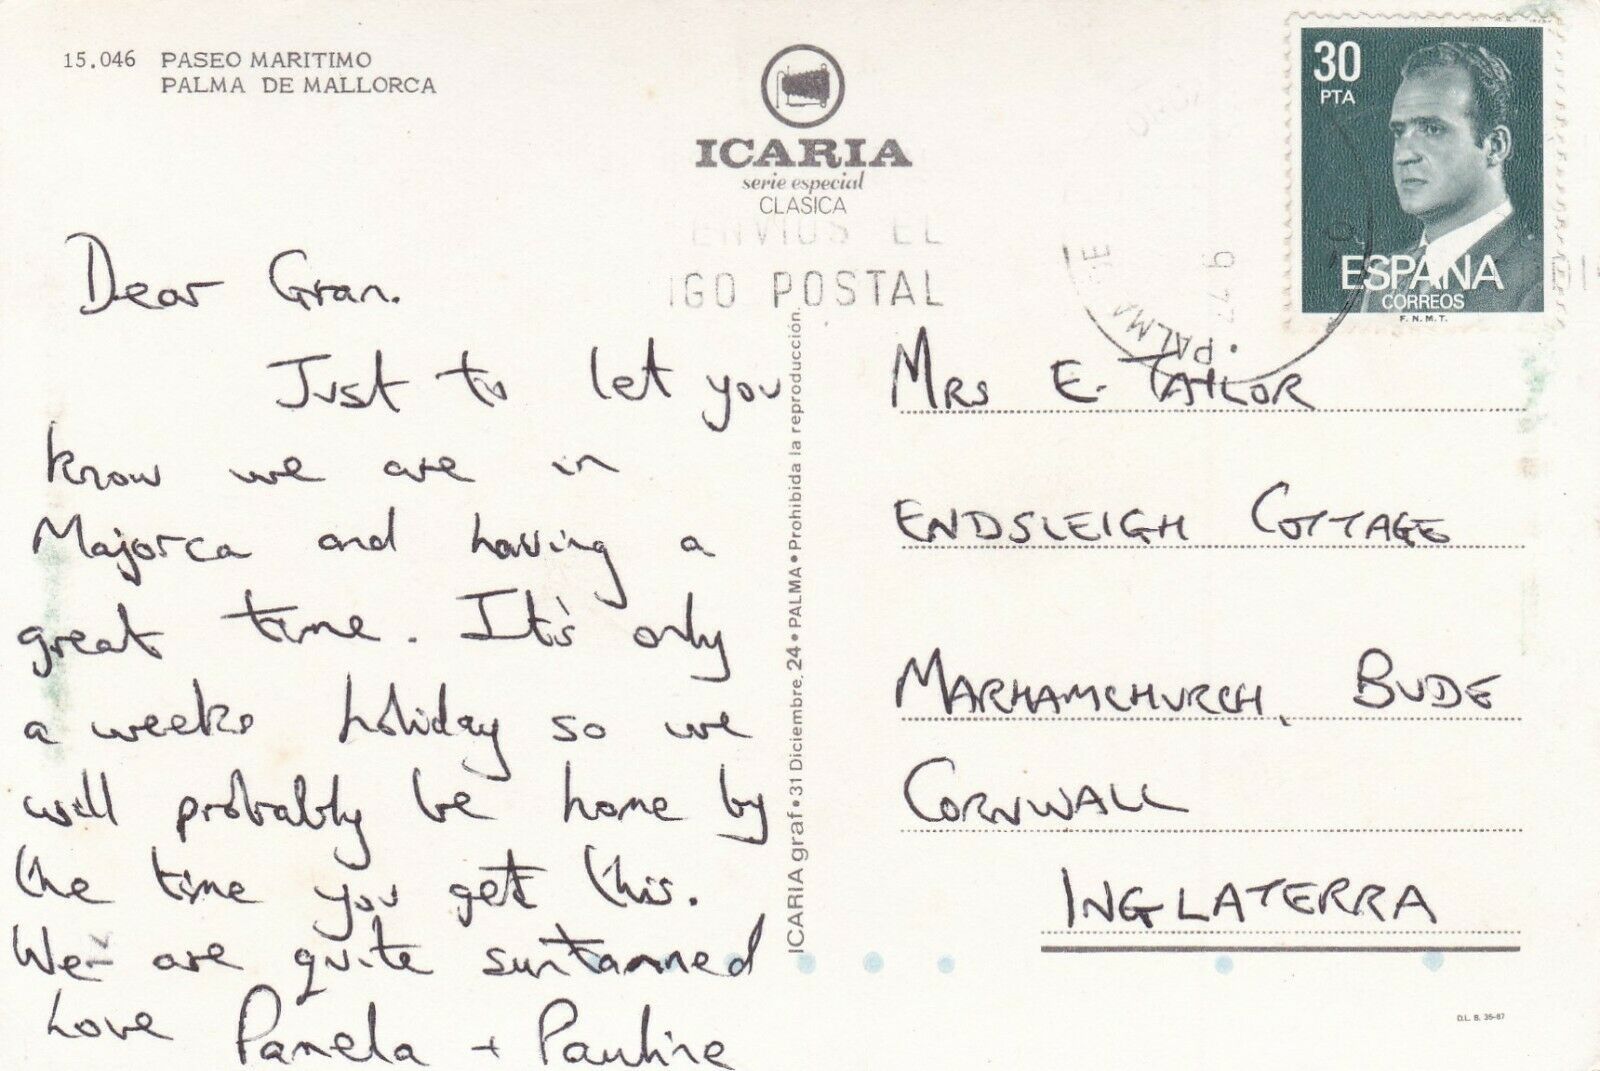 15.046 PASEO MARITIMO
PALMA DE MALLORCA
ICARIA
serie especial
CLASICA
ENVIOS EL
IGO POSTAL
30
PTA
ESPAÑA
CORREOS
F.N.M.T.
PALMA DE
Dear Gran.
Just to let you
know we are in
Majorca and having a
great time. It's only
a weeks holiday so we
will probably be home by
the time you get this.
We are quite suntanned
Love Pamela + Pauline
ICARIA graf • 31 Diciembre, 24 • PALMA • Prohibida la reproducción.
MRS E. TAYLOR
ENDSLEIGH COTTAGE
MARHAMCHURCH, BUDE
CORNWALL
INGLATERRA
D.L. B. 35-87